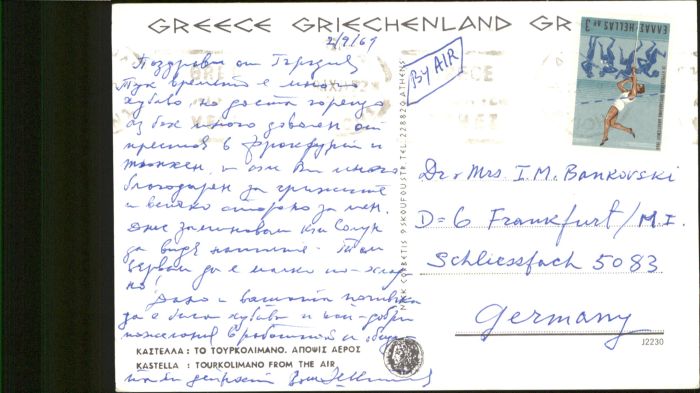 GREECE GRIECHENLAND GR
2/9/69
Поздрави от Гърция
Тук времето е много
хубаво но доста горещо
аз бях много доволен от
престоя в Франкфурт и
и съм Ви много
благодарен за грижите
и всичко сторено за мен.
заминавам към Солун
да видя нашите. Там
вервам да е малко по-хлад
но!
Дано и вашата почивка
да е била хубава и най-добри
пожелания в работата и
BY AIR
ΕΛΛΑΣ-HELLAS ΔΡ 3
TEL. 228820 ATHENS
Dr + Mrs I.M. Bankovski
D=6 Frankfurt/M.I.
Schliessfach 5083
Germany
J2230
ΚΑΣΤΕΛΛΑ : ΤΟ ΤΟΥΡΚΟΛΙΜΑΝΟ. ΑΠΟΨΙΣ ΑΕΡΟΣ
KASTELLA : TOURKOLIMANO FROM THE AIR